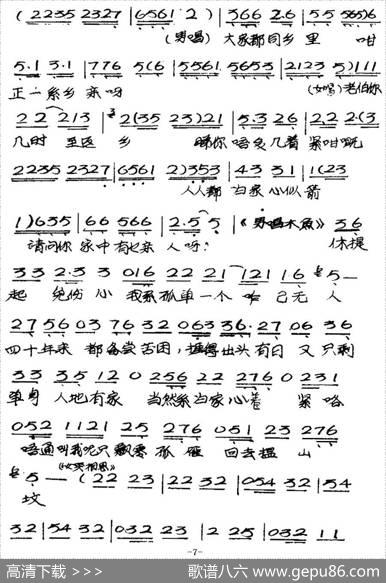 ( 2235 2327 | 6561 2 ) | 366 2.6 | 5.5 5656
(男唱) 大家都同乡里 咁
5.1 3.1 | 776 5(6 | 5561 5653 | 2123 5) 111
正一系乡亲呀 (女唱) 老伯你
22 213 | 2(35 23)21 | 5.3 26 | 22 2(3
几时 返 乡 睇你唔 几着紧咁
2235 2327 | 6561 2)353 | 43 31 | 1(23
人人都 归家心似箭
1)635 | 66 566 | 2.5 5 | 《男唱木鱼》 36
请问你 家中有 亲人呀? 休提
33 2.3 3 016 22 21 121 16 5—
起 绝伤心 我系孤单一个 咋 已无人
27 56 03 76 32 063 36.27 06 36
四十年来 都备尝苦困, 搵得出头有日 又只剩
33 35 12 0 256 22 276 0 231
单身 人地有家 当然系归家心 紧咯
052 1121 25 276 051 23 276
唔通叫我 只飘零孤雁 回去搵山
5 — (女哭相思) ( 22 23 | 22 32 | 054 32 | 54
坟
32 | 54 32 | 032 23 | 2 25 | 032 11
-7-
高清下载 >>>
歌谱八六 www.gepu86.com